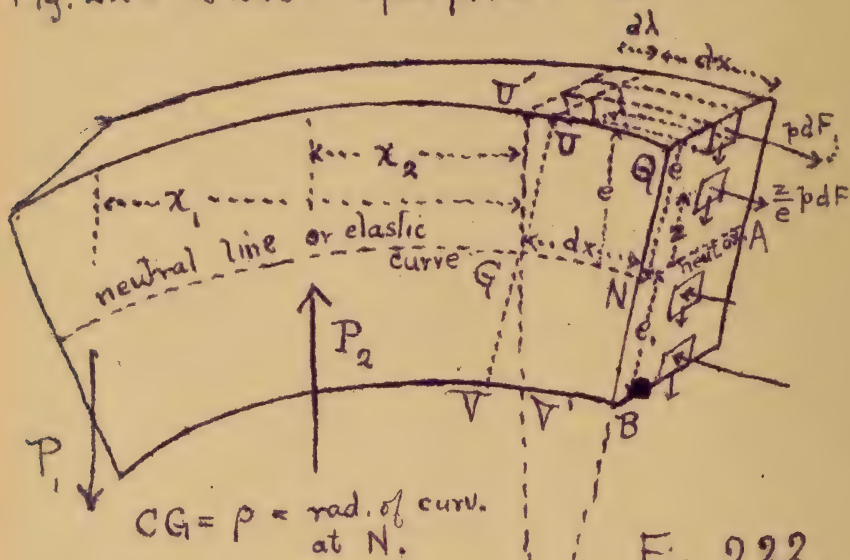 dλ
dx
U'
U
pdF
x₂
e
Q
e
z/e pdF
x₁
z
dx
A
neutral line or elastic
curve
G
N
e₁
P₂
V
V'
B
P₁
CG = ρ = rad. of curv.
at N.